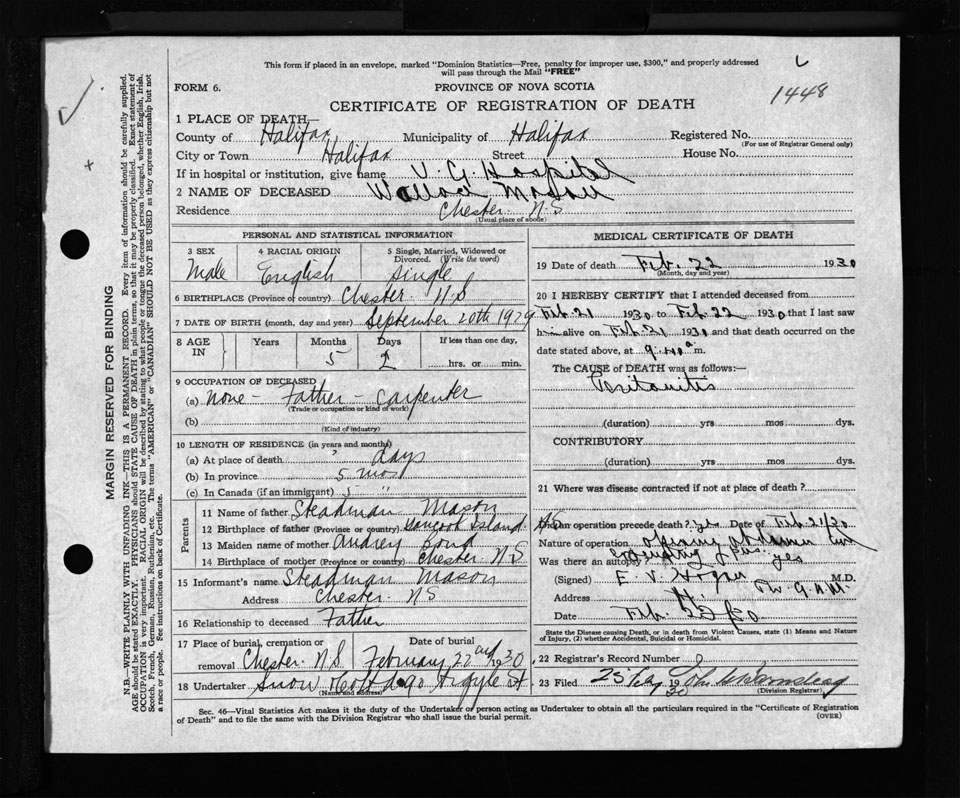 This form if placed in an envelope, marked "Dominion Statistics—Free, penalty for improper use, $300," and properly addressed
will pass through the Mail "FREE"
FORM 6.
PROVINCE OF NOVA SCOTIA
1448
CERTIFICATE OF REGISTRATION OF DEATH
1 PLACE OF DEATH—
County of Halifax Municipality of Halifax Registered No.
(For use of Registrar General only)
City or Town Halifax Street House No.
If in hospital or institution, give name V. G. Hospital
2 NAME OF DECEASED Wallace Mason
Residence Chester N.S
(Usual place of abode)
PERSONAL AND STATISTICAL INFORMATION
3 SEX 4 RACIAL ORIGIN 5 Single, Married, Widowed or Divorced. (Write the word)
Male English Single
6 BIRTHPLACE (Province or country) Chester. N.S
7 DATE OF BIRTH (month, day and year) September 20th 1929
8 AGE IN Years Months Days If less than one day,
5 2 hrs. or min.
9 OCCUPATION OF DECEASED
(a) None - Father - Carpenter
(Trade or occupation or kind of work)
(b)
(Kind of industry)
10 LENGTH OF RESIDENCE (in years and months)
(a) At place of death days
(b) In province 5 mos
(c) In Canada (if an immigrant) 5 "
Parents
11 Name of father Steadman Mason
12 Birthplace of father (Province or country) Tancook Island
13 Maiden name of mother Audrey Bond
14 Birthplace of mother (Province or country) Chester N S
15 Informant's name Steadman Mason
Address Chester. N S
16 Relationship to deceased Father
17 Place of burial, cremation or removal Date of burial
Chester. N.S. February 22nd 1930
18 Undertaker Snow Argyle St
(Name and address)
MEDICAL CERTIFICATE OF DEATH
19 Date of death Feb. 22 1930
(Month, day and year)
20 I HEREBY CERTIFY that I attended deceased from
Feb. 21 1930 to Feb. 22 1930 that I last saw
him alive on Feb 21 1930 and that death occurred on the
date stated above, at a m.
The CAUSE of DEATH was as follows:—
Peritonitis
(duration) yrs mos dys.
CONTRIBUTORY
(duration) yrs mos dys.
21 Where was disease contracted if not at place of death?
Did an operation precede death? yes Date of Feb. 21/30
Nature of operation Opening abdomen
evacuating pus.
Was there an autopsy? yes
(Signed) E. V. Hogan M.D.
Address
Date Feb. 23/30
State the Disease causing Death, or in death from Violent Causes, state (1) Means and Nature
of Injury, (2) whether Accidental, Suicidal or Homicidal.
22 Registrar's Record Number
23 Filed 25 Feby 1930
(Division Registrar)
Sec. 46—Vital Statistics Act makes it the duty of the Undertaker or person acting as Undertaker to obtain all the particulars required in the "Certificate of Registration
of Death" and to file the same with the Division Registrar who shall issue the burial permit.
(OVER)
MARGIN RESERVED FOR BINDING
N.B.—WRITE PLAINLY WITH UNFADING INK—THIS IS A PERMANENT RECORD. Every item of information should be carefully supplied.
AGE should be stated EXACTLY. PHYSICIANS should STATE CAUSE OF DEATH in plain terms, so that it may be properly classified. Exact statement of
OCCUPATION is very important. RACIAL ORIGIN will be described by stating to what people or tongue the deceased person belonged, whether English, Irish,
Scotch, French, German, Russian, Ruthenian, etc. The terms "AMERICAN" or "CANADIAN" SHOULD NOT BE USED as they express citizenship but not
a race or people. See instructions on back of Certificate.